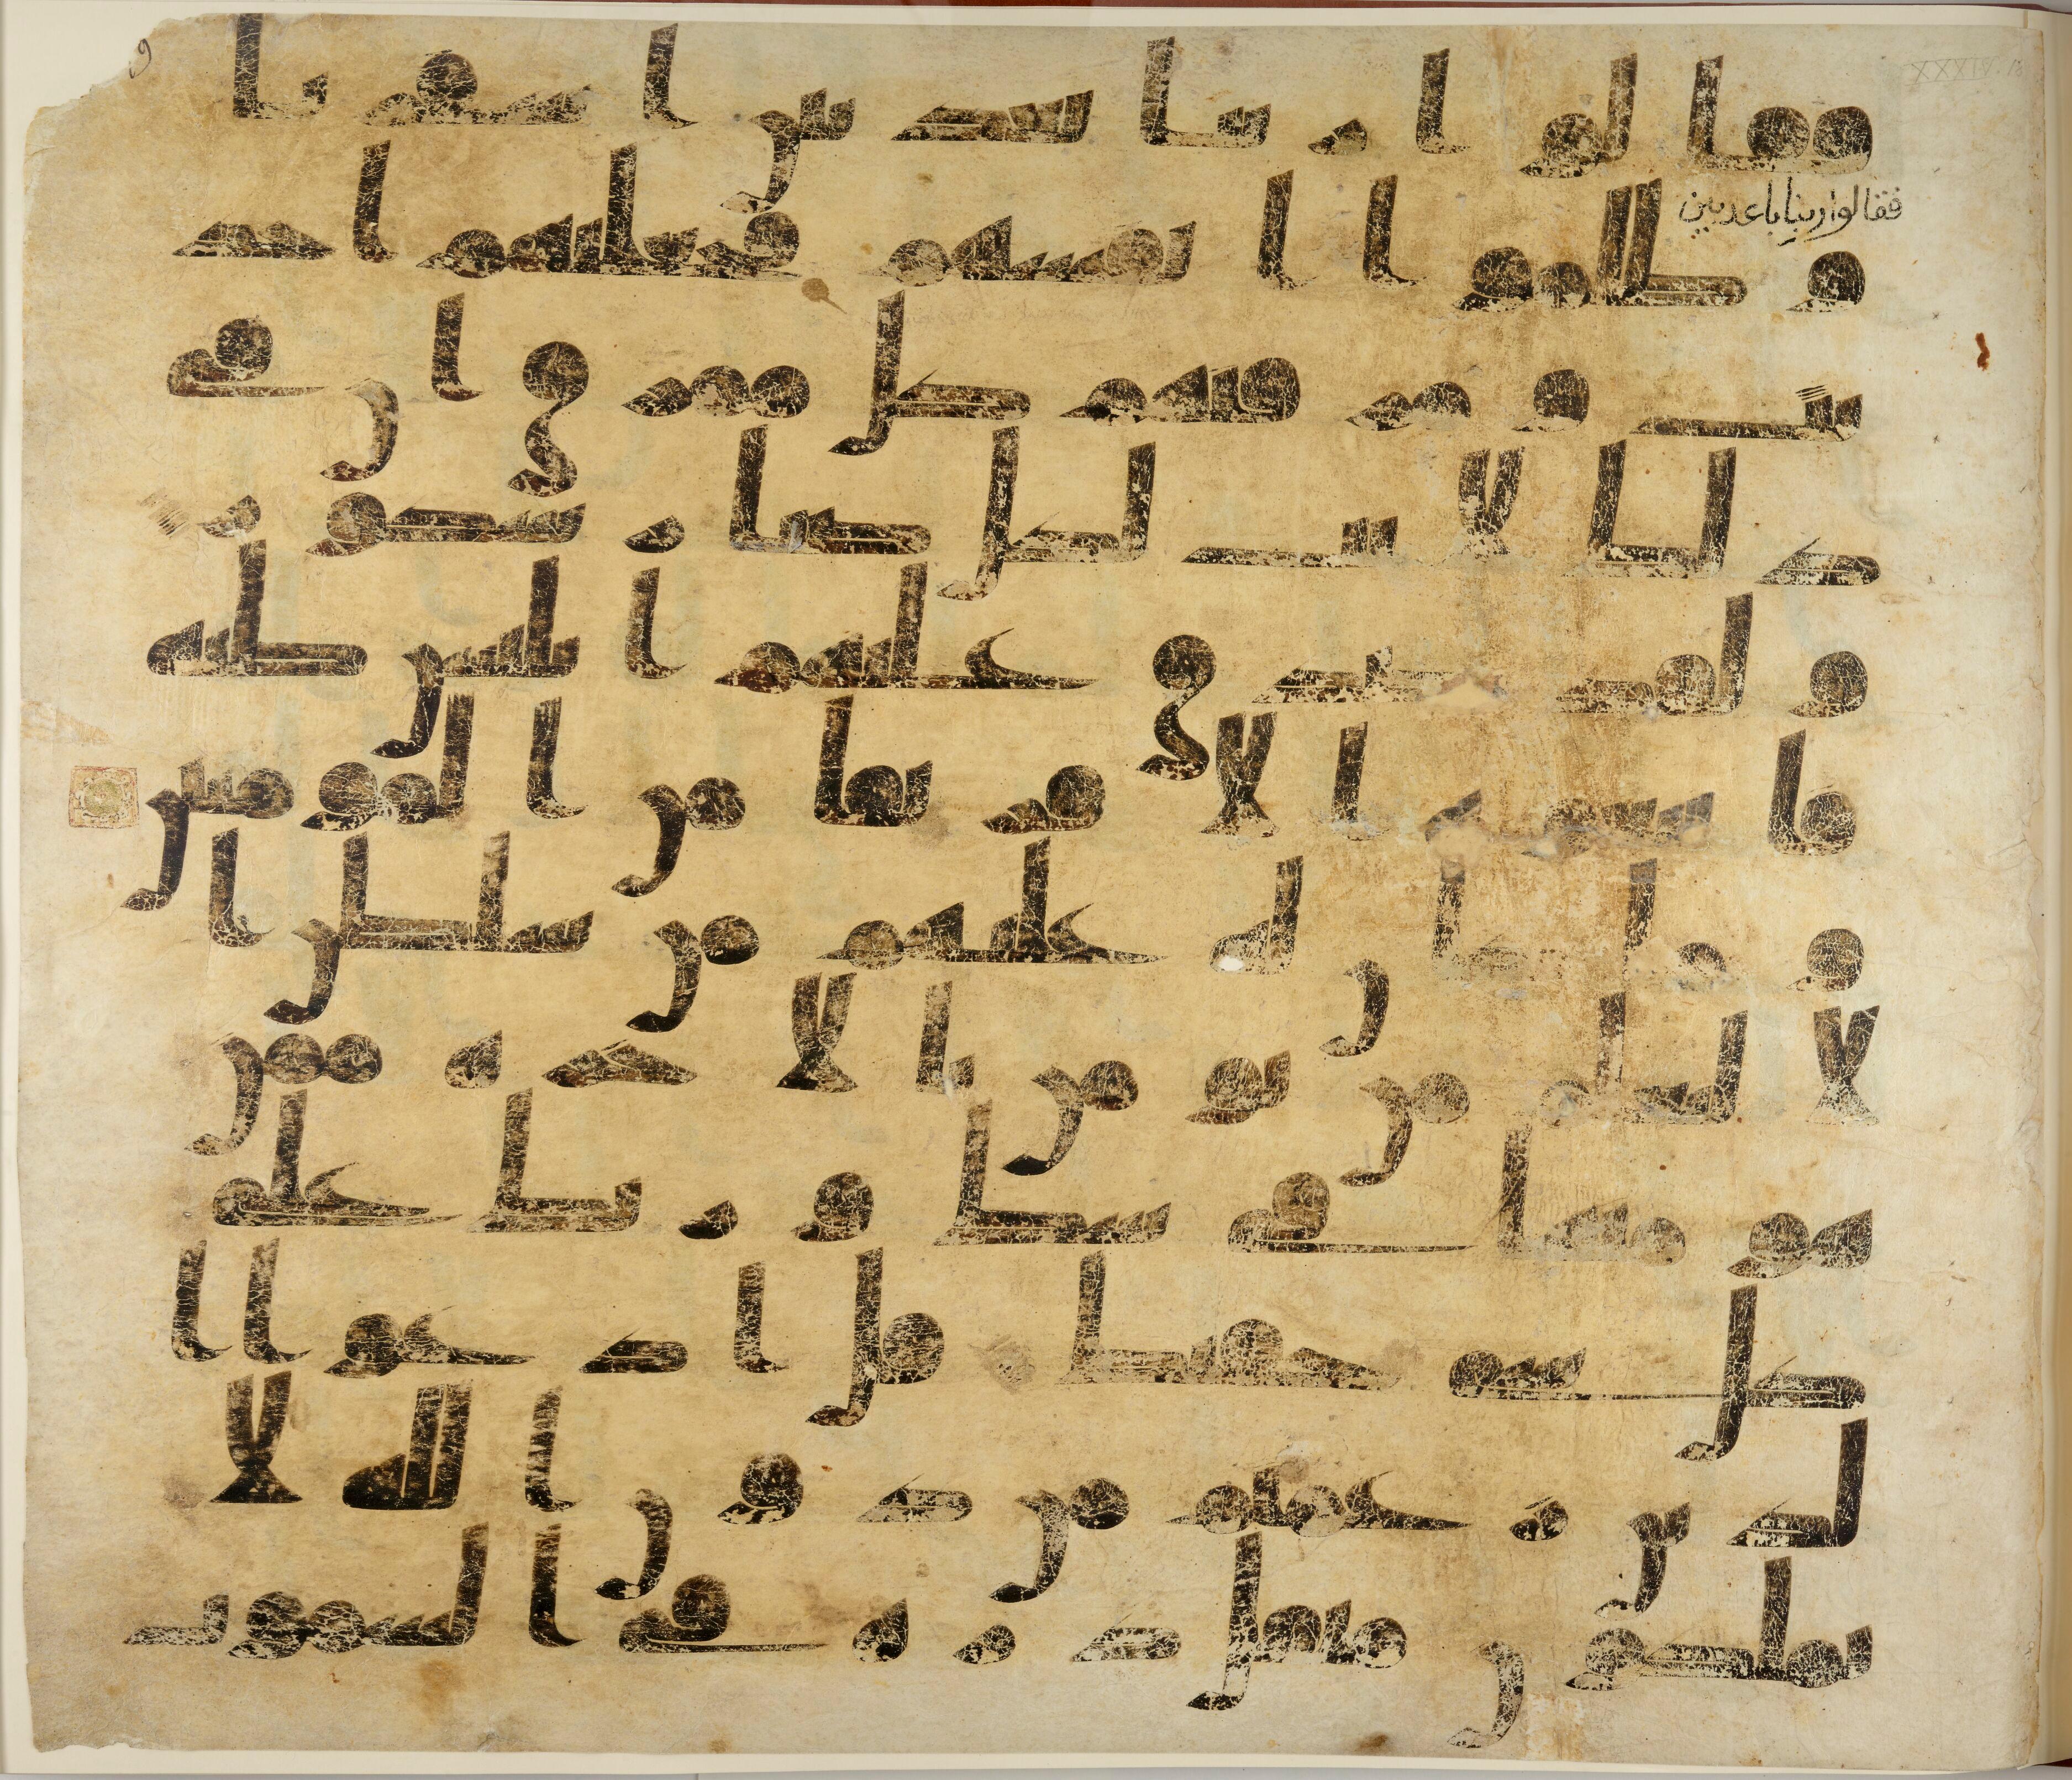 فقالوا ربنا بعد بين اسفرنا
فقالوا ربنا باعد بين
وظلموا انفسهم فجعلنهم احد
يث ومزقنهم كل ممزق ان في
ذلك لايت لكل صبار شكور
ولقد صدق عليهم ابليس ظنه
فاتبعوه الا فريقا من المومنين
وما كان له عليهم من سلطن ا
لا لنعلم من يومن بالاخرة ممن
هو منها في شك وربك على
كل شي حفيظ قل ادعوا ا
لذين زعمتم من دون الله لا
يملكون مثقل ذرة في السموت